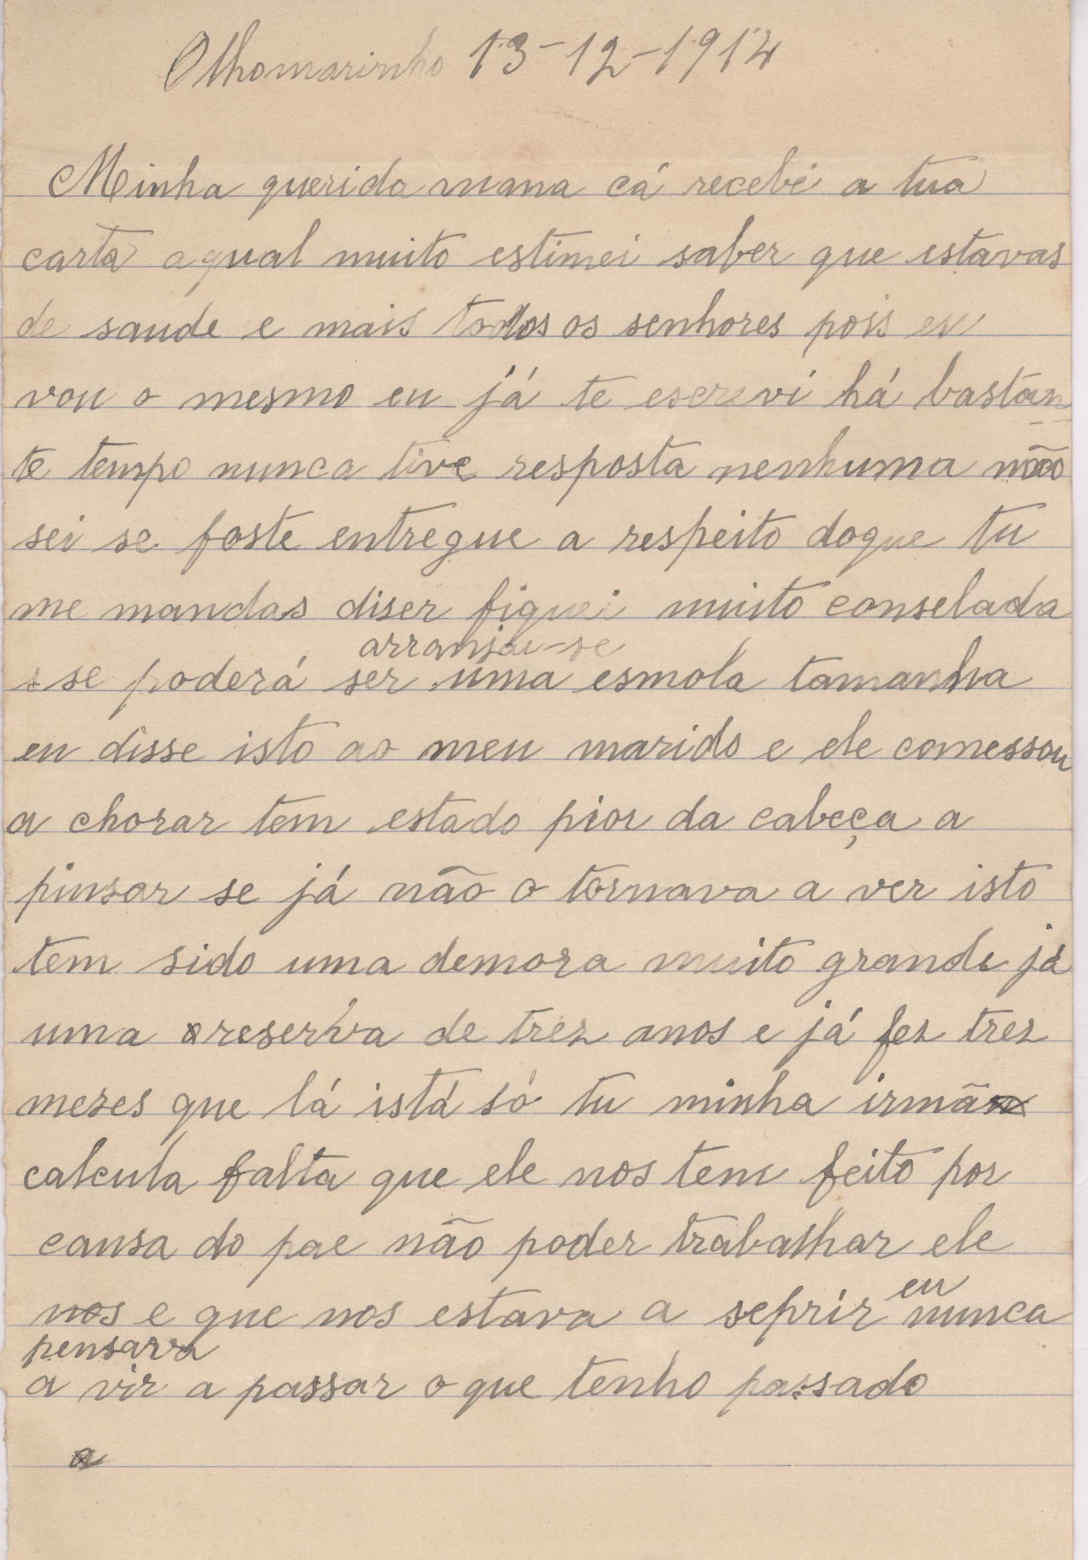 Olhomarinho 13-12-1914
Minha querida mana cá recebi a tua
carta aqual muito estimei saber que estavas
de saude e mais todos os senhores pois eu
vou o mesmo eu já te escrevi há bastan
te tempo nunca tive resposta nenhuma não
sei se foste entregue a respeito doque tu
me mandas diser fiquei muito conselada
arranjou-se
s se poderá ser uma esmola tamanha
eu disse isto ao meu marido e ele comessou
a chorar tem estado pior da cabeça a
pinsar se já não o tornava a ver isto
tem sido uma demora muito grande já
uma reserva de trez anos e já fez trez
mezes que lá istá só tu minha irmã
calcula falta que ele nos tem feito por
causa do pae não poder trabalhar ele
eu
nos e que nos estava a seprir nunca
pensava
a vir a passar o que tenho passado
a